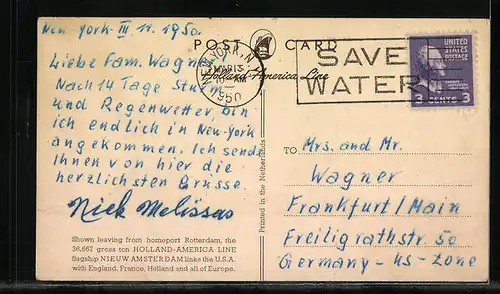 New-York-III 11. 1950.
Liebe Fam. Wagner
Nach 14 Tage Sturm
und Regenwetter bin
ich endlich in New-York
angekommen. Ich sende
Ihnen von hier die
herzlichsten Grüsse.
Nick Melissas
Shown leaving from homeport Rotterdam, the
36,667 gross ton HOLLAND-AMERICA LINE
flagship NIEUW AMSTERDAM links the U.S.A.
with England, France, Holland and all of Europe.
POST CARD
Holland-America Line
NEW YORK, N.Y.
MAR 13
1950
SAVE
WATER
UNITED
STATES
POSTAGE
3 CENTS 3
Printed in the Netherlands
TO
Mrs. and Mr.
Wagner
Frankfurt/Main
Freiligrathstr. 50
Germany-US-Zone